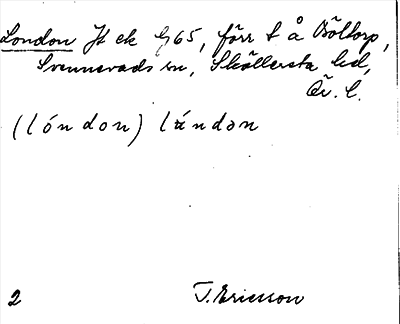 London Jt ek G65, förr t å Böltorp,
Svennevads sn, Sköllersta hd,
Ör. l.
(lóndon) lúndɘn
2 T. Ericsson